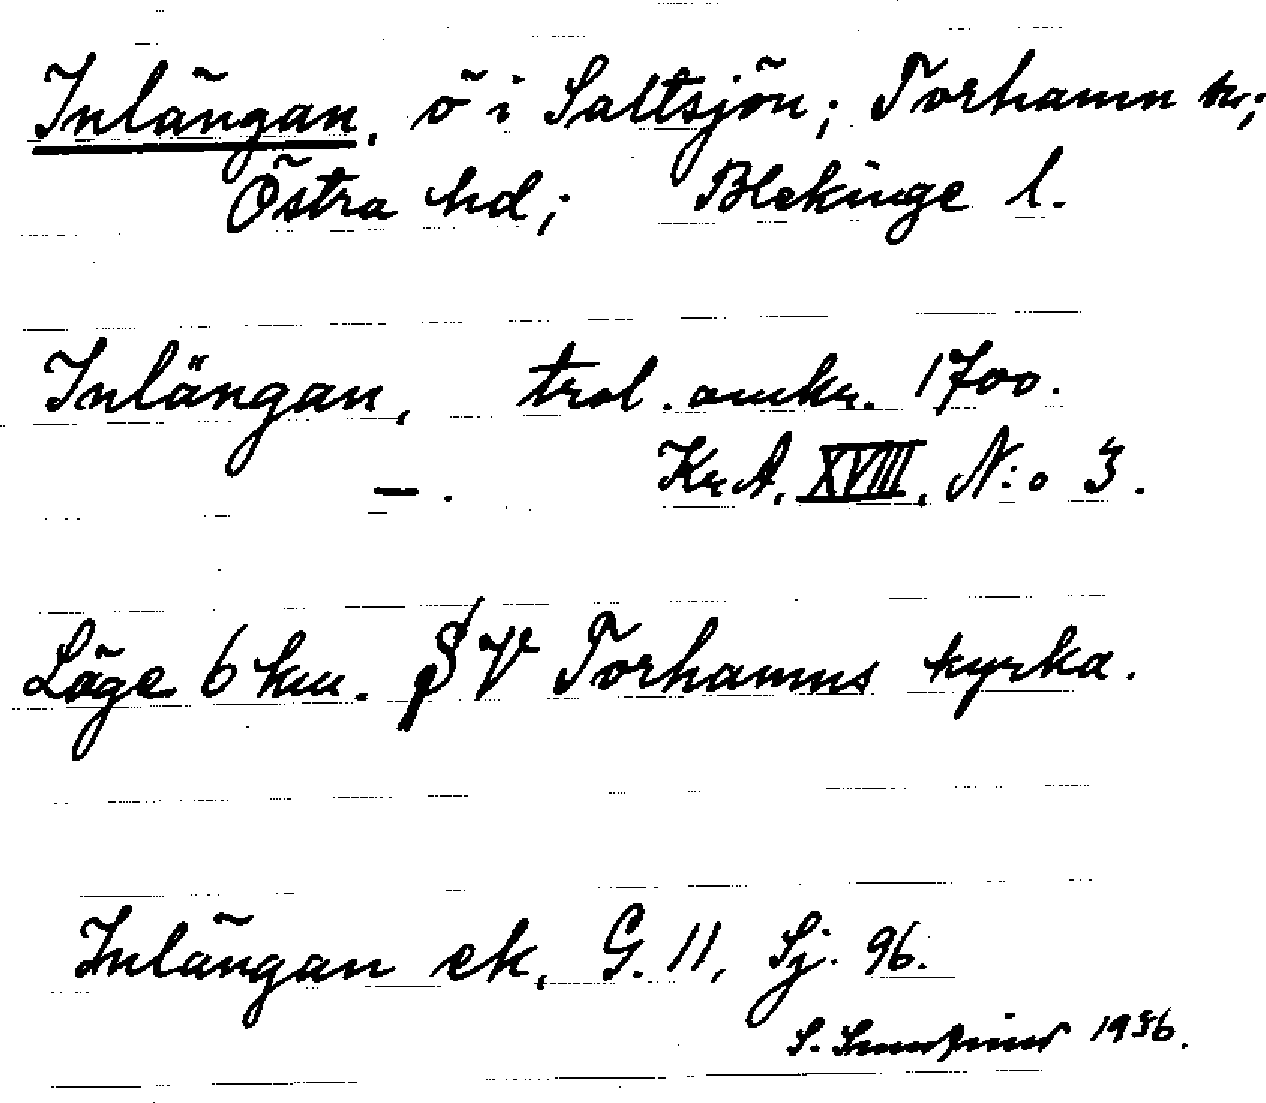 Inlängan, ö i Saltsjön; Torhamn sn;
Östra hd; Blekinge l.
Inlängan, trol. omkr. 1700.
— . KrA, XVIII, N:o 3.
Läge 6 km. SV Torhamns kyrka.
Inlängan ek, G. 11, Sj. 96.
S. 1936.